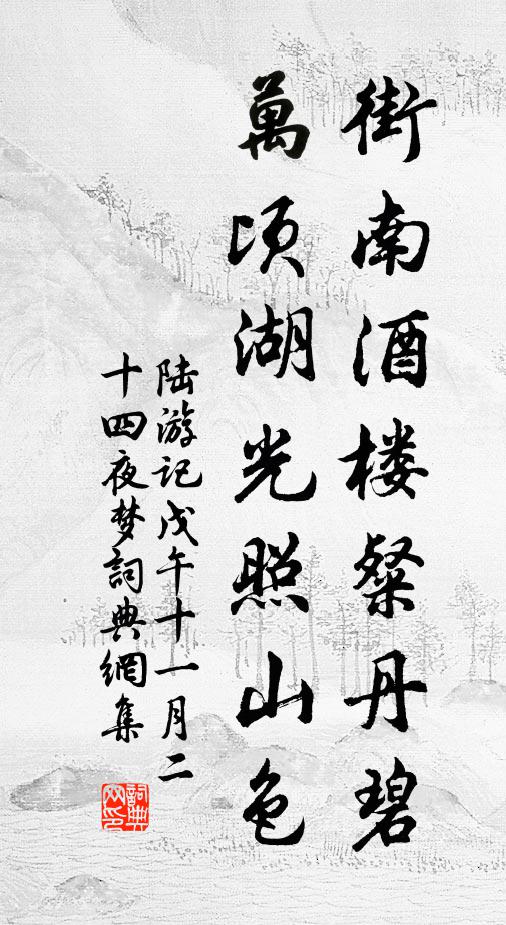 街南酒楼粲丹碧
萬頃湖光照山色
陆游记戊午十一月二
十四夜梦詞典網集
詞典
网印